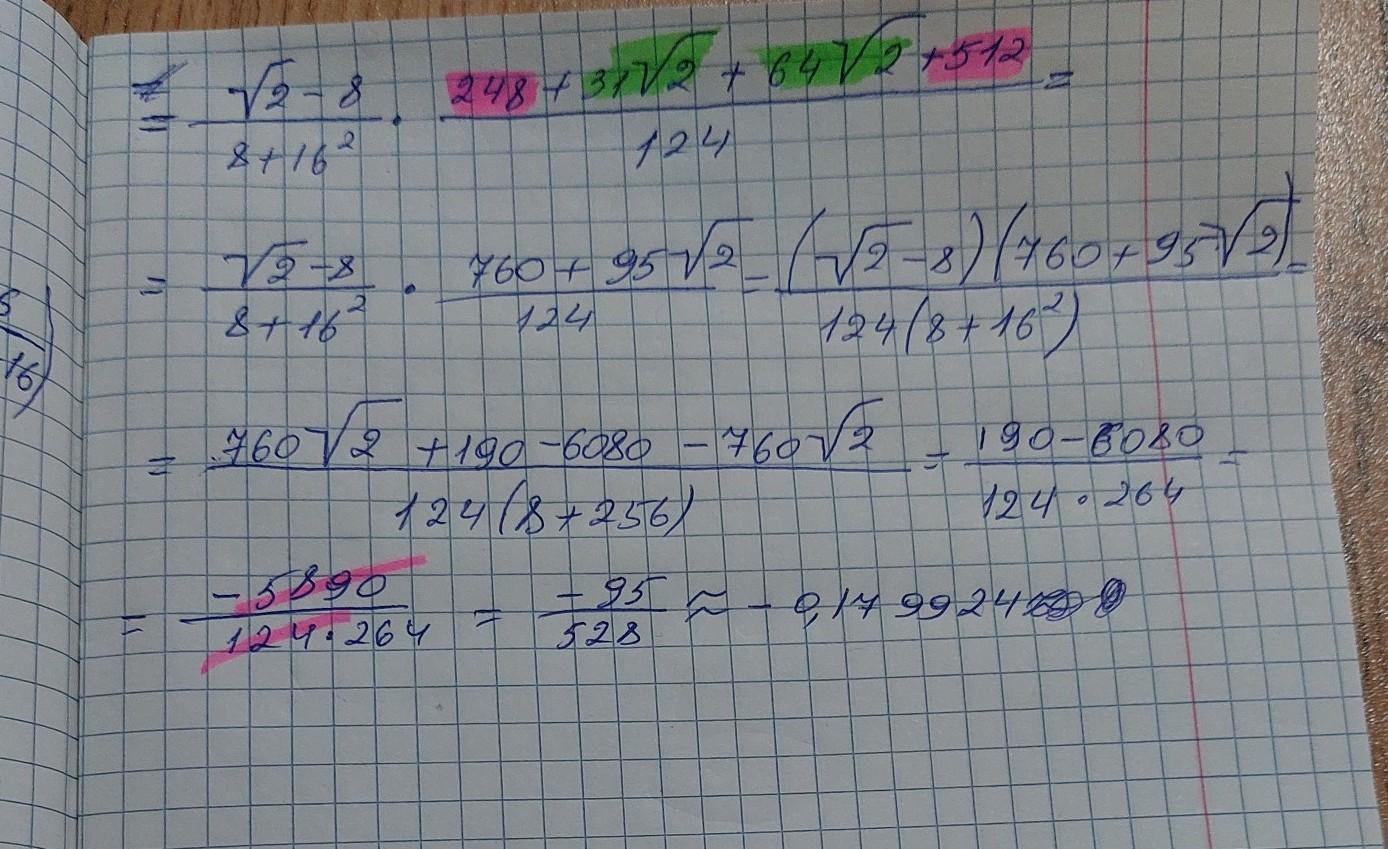 = (√2 - 8)/(8 + 16²) · (248 + 31√2 + 64√2 + 512)/124 =
= (√2 - 8)/(8 + 16²) · (760 + 95√2)/124 = ((√2 - 8)(760 + 95√2))/(124(8 + 16²)) =
= (760√2 + 190 - 6080 - 760√2)/(124(8 + 256)) = (190 - 6080)/(124 · 264) =
= (-5890)/(124 · 264) = (-95)/528 ≈ - 0,179924
16)